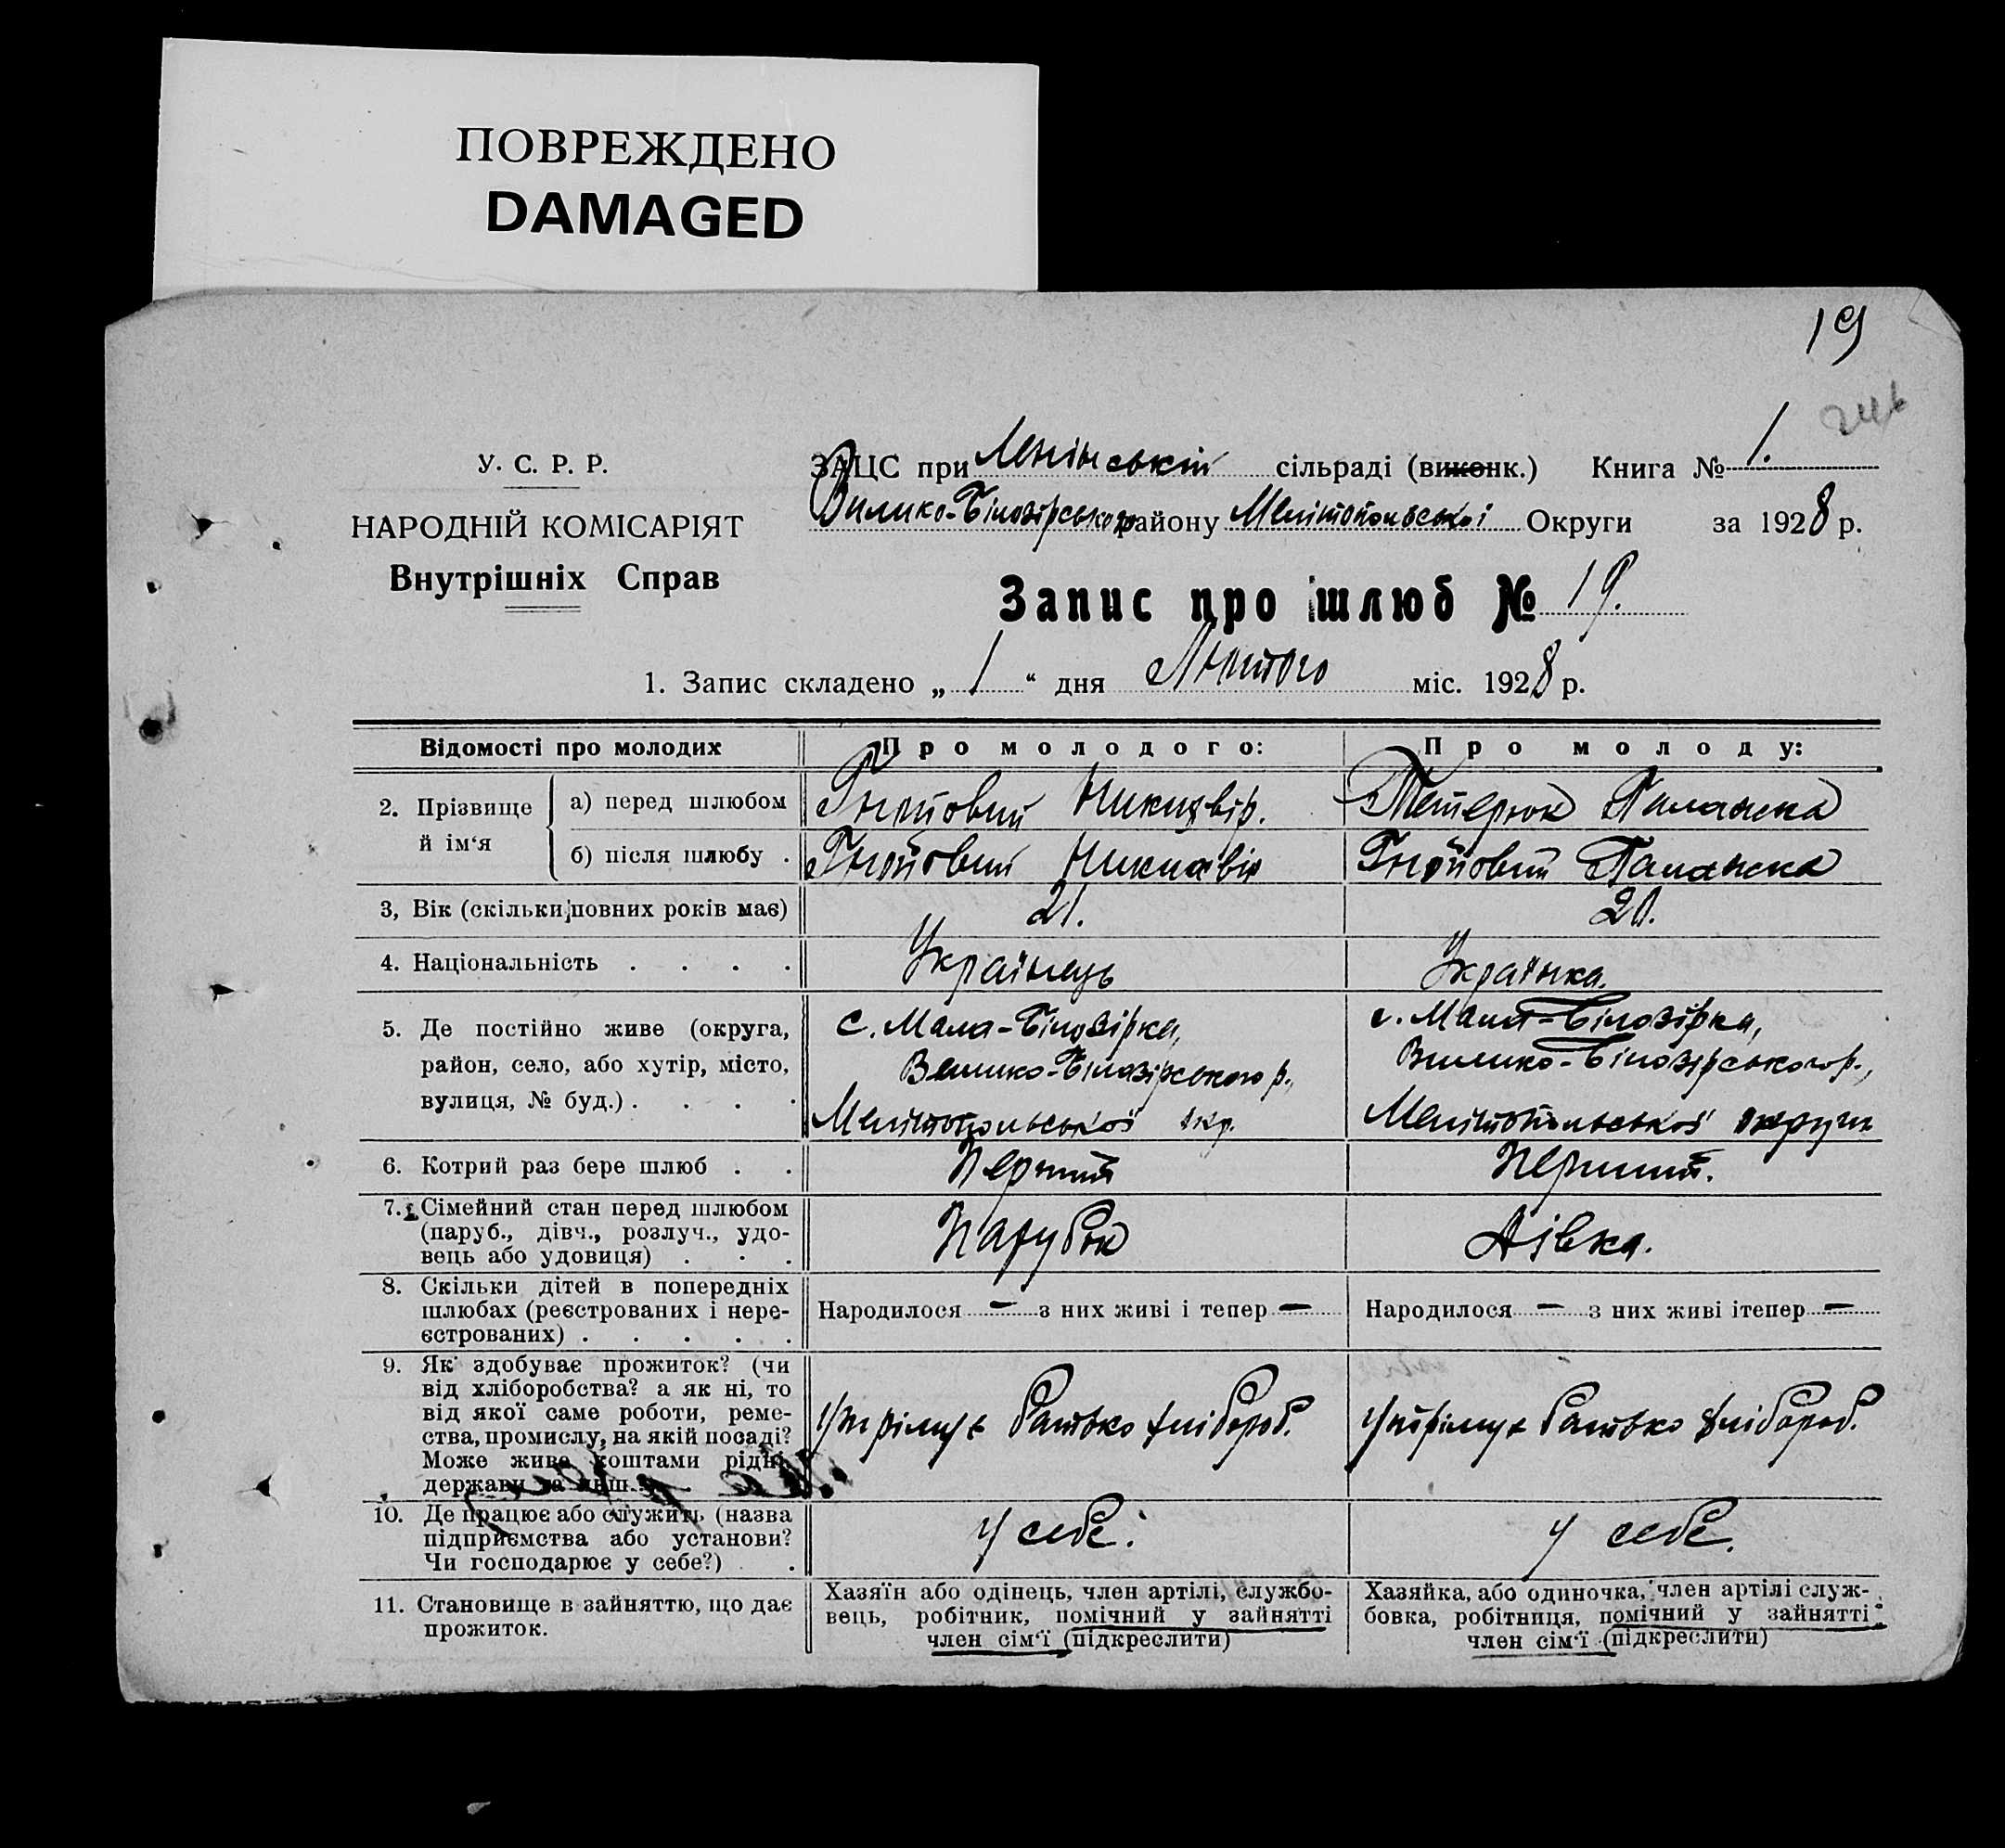 ПОВРЕЖДЕНО
DAMAGED
19
У. С. Р. Р.
НАРОДНІЙ КОМІСАРІЯТ
Внутрішніх Справ
ЗАЦС при Ленінській сільраді (виконк.) Книга № 1.
Велико-Білозірського району Мелітопольської Округи за 1928 р.
Запис про шлюб № 19.
1. Запис складено „ 1 “ дня Лютого міс. 1928 р.
Відомості про молодих Про молодого: Про молоду:
2. Прізвище й ім‘я
а) перед шлюбом Гнотовий Теперюк Палажка
б) після шлюбу . Гнотовий Гнотовий Палажка
3, Вік (скільки повних років має) 21. 20.
4. Національність . . . . Українець Українка.
5. Де постійно живе (округа,
район, село, або хутір, місто,
вулиця, № буд.) . . . .
с. Мала-Білозірка,
Велико-Білозірського р.,
Мелітопольської окр.
с. Мала-Білозірка,
Велико-Білозірського р.,
Мелітопольської округи
6. Котрий раз бере шлюб . . Перший Перший.
7. Сімейний стан перед шлюбом
(паруб., дівч., розлуч., удо-
вець або удовиця) . . .
Парубок Дівка.
8. Скільки дітей в попередніх
шлюбах (реєстрованих і нере-
єстрованих) . . . . .
Народилося — з них живі і тепер —
Народилося — з них живі ітепер —
9. Як здобуває прожиток? (чи
від хліборобства? а як ні, то
від якої саме роботи, реме-
ства, промислу, на якій посаді?
Може живе коштами рідні,
держави та инш.
утрімує батько хлібороб.
утрімує батько хлібороб.
10. Де працює або служить (назва
підприємства або установи?
Чи господарює у себе?) . .
у себе. у себе.
11. Становище в зайняттю, що дає
прожиток.
Хазяїн або одінець, член артілі, службо-
вець, робітник, помічний у зайнятті
член сім‘ї (підкреслити)
Хазяйка, або одиночка, член артілі служ-
бовка, робітниця, помічний у зайнятті
член сім‘ї (підкреслити)